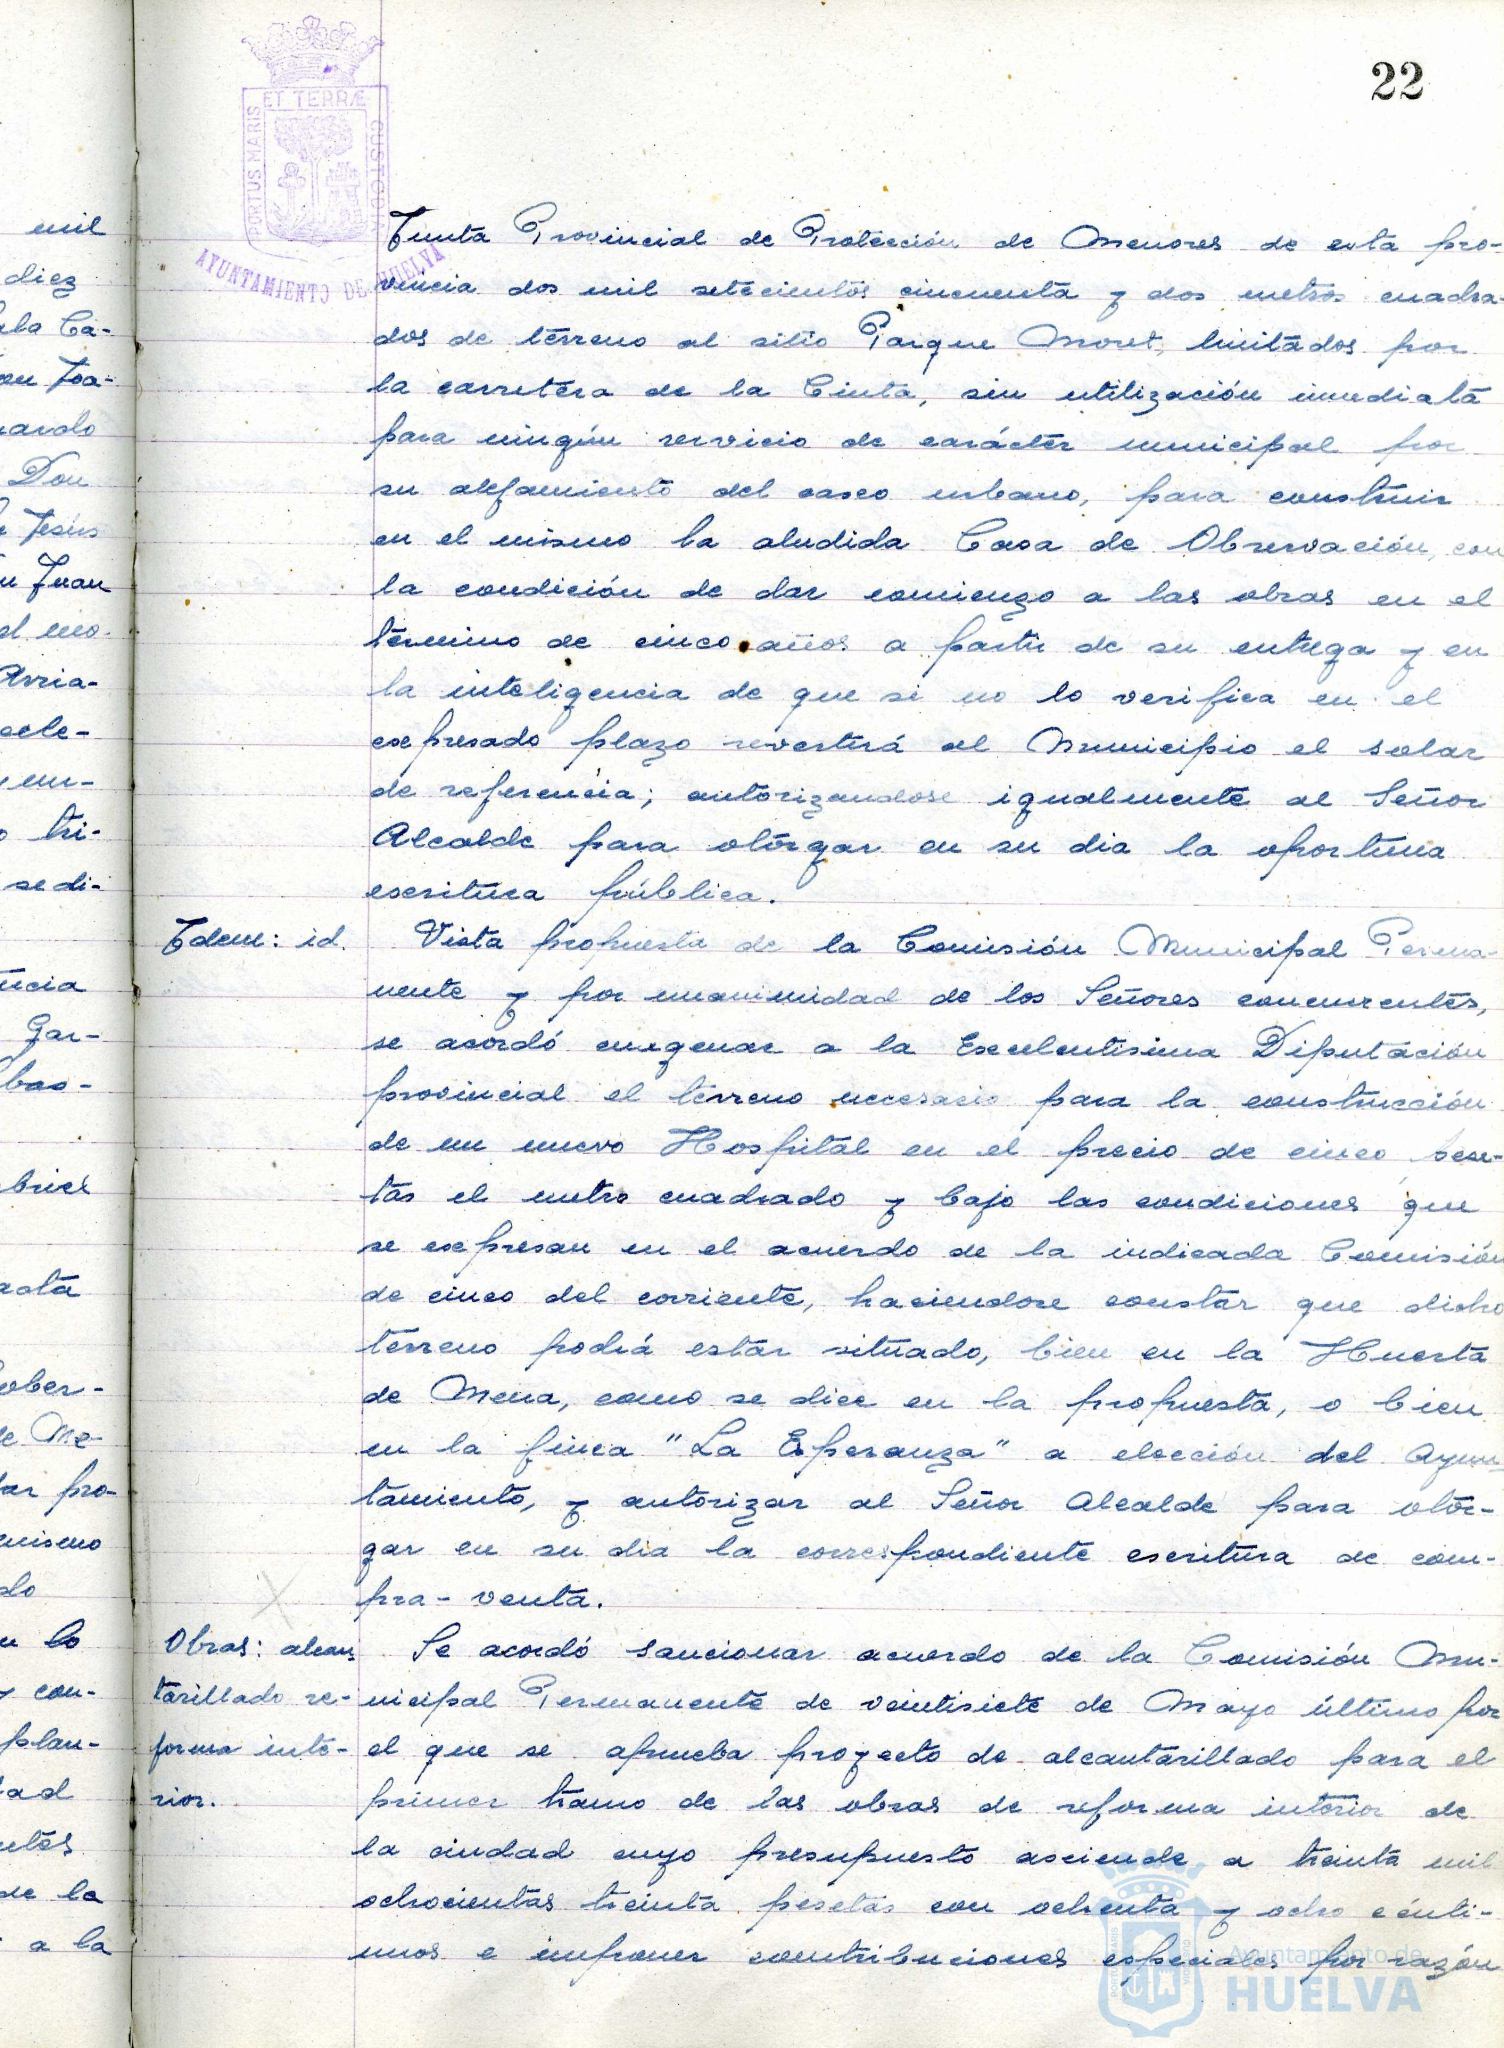 22
PORTUS MARIS ET TERRÆ CUSTODIA
AYUNTAMIENTO DE HUELVA
Junta Provincial de Protección de Menores de esta pro-
vincia dos mil setecientos cincuenta y dos metros cuadra-
dos de terreno al sitio Parque Moret, limitados por
la carretera de la Cinta, sin utilización inmediata
para ningún servicio de carácter municipal por
su alejamiento del casco urbano, para construir
en el mismo la aludida Casa de Observación, con
la condición de dar comienzo a las obras en el
término de cinco años a partir de su entrega y en
la inteligencia de que si no lo verifica en el
expresado plazo revertirá al Municipio el solar
de referencia; autorizandose igualmente al Señor
Alcalde para otorgar en su dia la oportuna
escritura pública.
Idem: id. Vista propuesta de la Comisión Municipal Perma-
nente y por unanimidad de los Señores concurrentes,
se acordó enagenar a la Excelentisima Diputación
provincial el terreno necesario para la construcción
de un nuevo Hospital en el precio de cinco pese-
tas el metro cuadrado y bajo las condiciones que
se expresan en el acuerdo de la indicada Comisión
de cinco del corriente, haciendose constar que dicho
terreno podrá estar situado, bien en la Huerta
de Mena, como se dice en la propuesta, o bien
en la finca "La Esperanza" a elección del Ayun-
tamiento, y autorizar al Señor Alcalde para otor-
gar en su dia la correspondiente escritura de com-
pra-venta.
Obras: alcan
tarillado re-
forma inte-
rior.
Se acordó sancionar acuerdo de la Comisión Mu-
nicipal Permanente de veintisiete de Mayo último por
el que se aprueba proyecto de alcantarillado para el
primer tramo de las obras de reforma interior de
la ciudad cuyo presupuesto asciende a treinta mil
ochocientas treinta pesetas con ochenta y ocho cénti-
mos e imponer contribuciones especiales por razón
Ayuntamiento de
HUELVA
mil
diez
Don
Jesús
Juan
Arria-
tri-
se di-
Gar-
pro-
mismo
do
lo
y con-
plan-
de la
a la